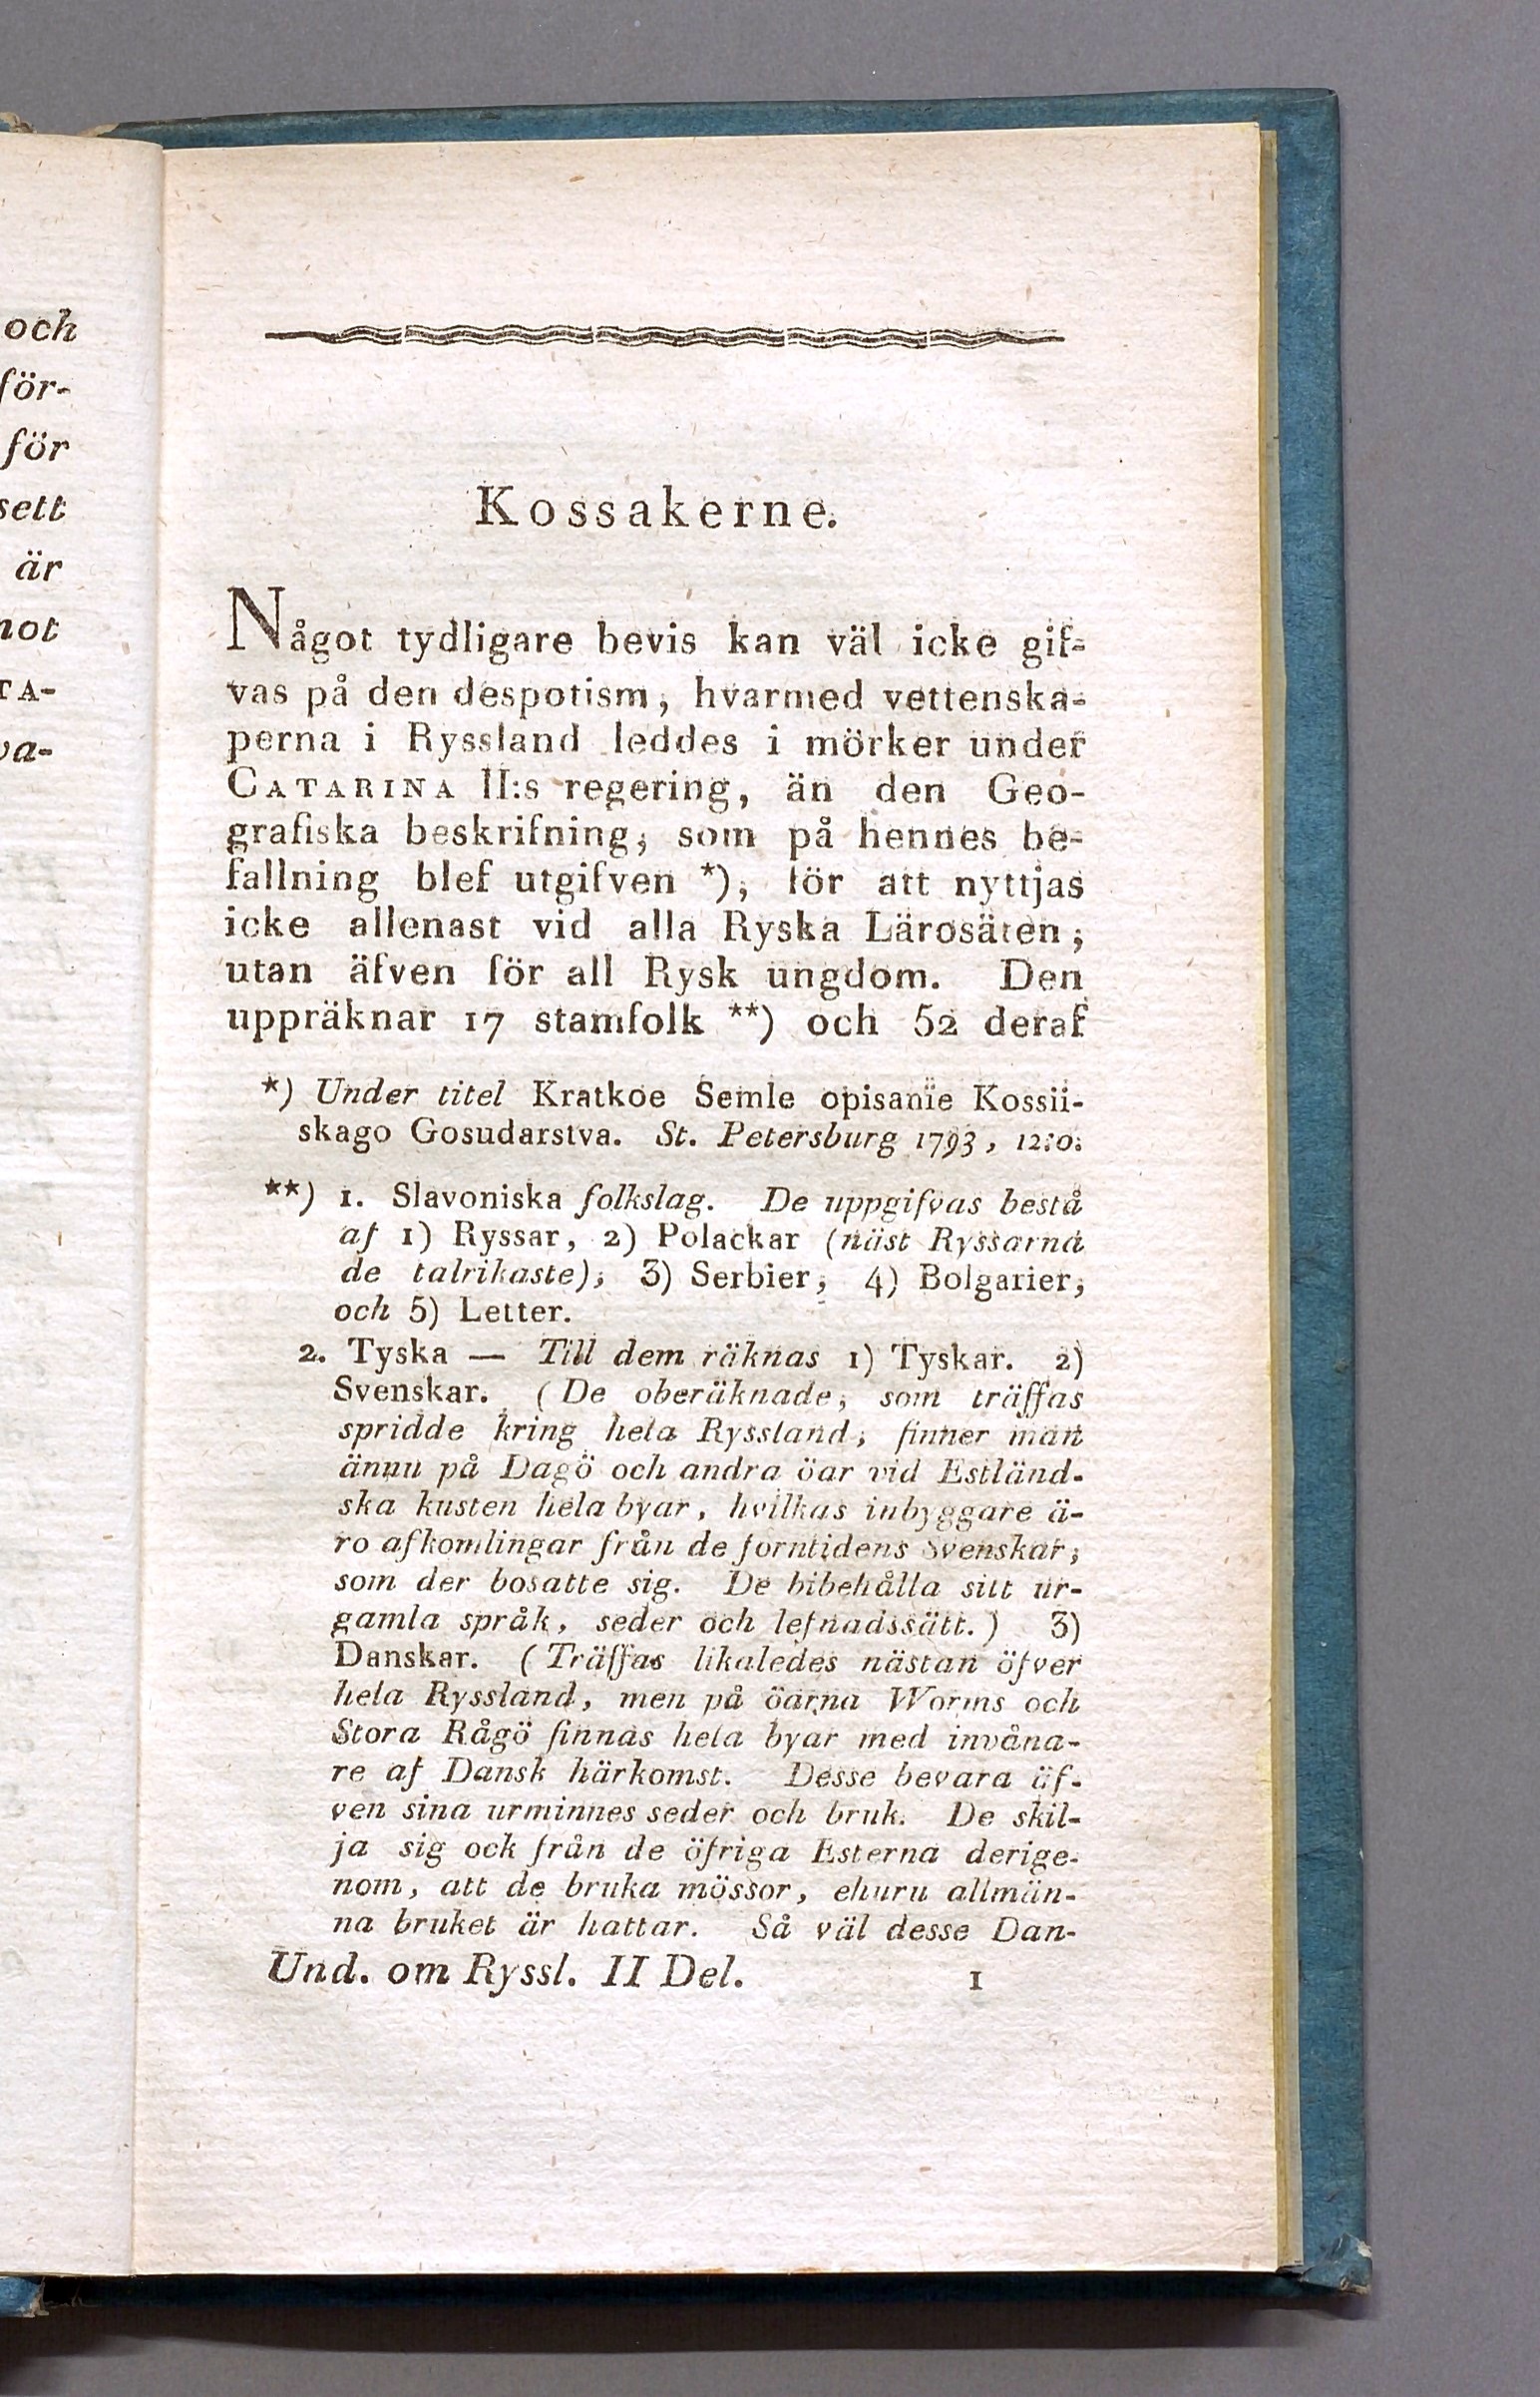 och
för-
för
sett
är
not
TA-
va-
Kossakerne.
Något tydligare bevis kan väl icke gif-
vas på den despotism, hvarmed vettenska-
perna i Ryssland leddes i mörker under
CATARINA II:s regering, än den Geo-
grafiska beskrifning, som på hennes be-
fallning blef utgifven *), för att nyttjas
icke allenast vid alla Ryska Lärosäten,
utan äfven för all Rysk ungdom. Den
uppräknar 17 stamfolk **) och 52 deraf
*) Under titel Kratkoe Semle opisanïe Kossii-
skago Gosudarstva. St. Petersburg 1793, 12:o.
**) 1. Slavoniska folkslag. De uppgifvas bestå
af 1) Ryssar, 2) Polackar (näst Ryssarna
de talrikaste), 3) Serbier, 4) Bolgarier,
och 5) Letter.
2. Tyska — Till dem räknas 1) Tyskar. 2)
Svenskar. (De oberäknade, som träffas
spridde kring hela Ryssland, finner man
ännu på Dagö och andra öar vid Estländ-
ska kusten hela byar, hvilkas inbyggare ä-
ro afkomlingar från de forntidens Svenskar,
som der bosatte sig. De bibehålla sitt ur-
gamla språk, seder och lefnadssätt.) 3)
Danskar. (Träffas likaledes nästan öfver
hela Ryssland, men på öarna Worms och
Stora Rågö finnas hela byar med invåna-
re af Dansk härkomst. Desse bevara äf-
ven sina urminnes seder och bruk. De skil-
ja sig ock från de öfriga Esterna derige-
nom, att de bruka mössor, ehuru allmän-
na bruket är hattar. Så väl desse Dan-
Und. om Ryssl. II Del. 1